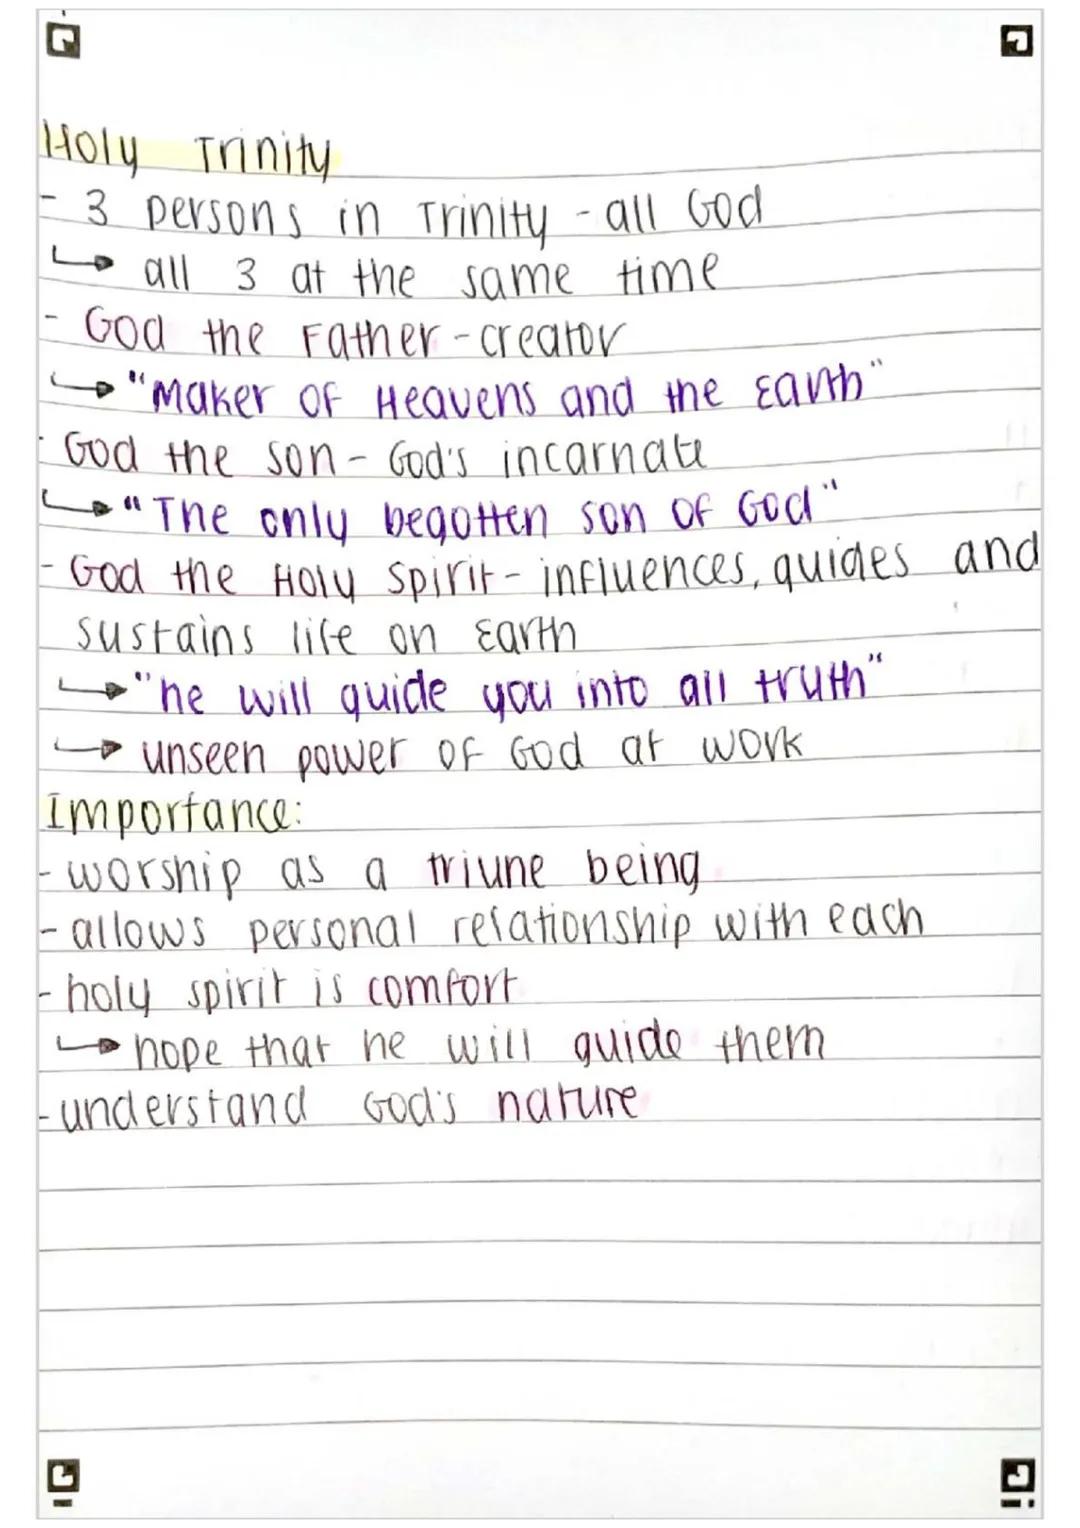 Holy Trinity
- 3 persons in Trinity - all God
↳ all 3 at the same time
- God the Father - creator
↳ "Maker of Heavens and the Earth"
- God the son - God's incarnate
↳ "The only begotten son of God"
- God the Holy Spirit - influences, guides and
sustains life on Earth
↳ "he will guide you into all truth"
↳ unseen power of God at work
Importance:
- worship as a triune being
- allows personal relationship with each
- holy spirit is comfort
↳ hope that he will guide them
- understand God's nature